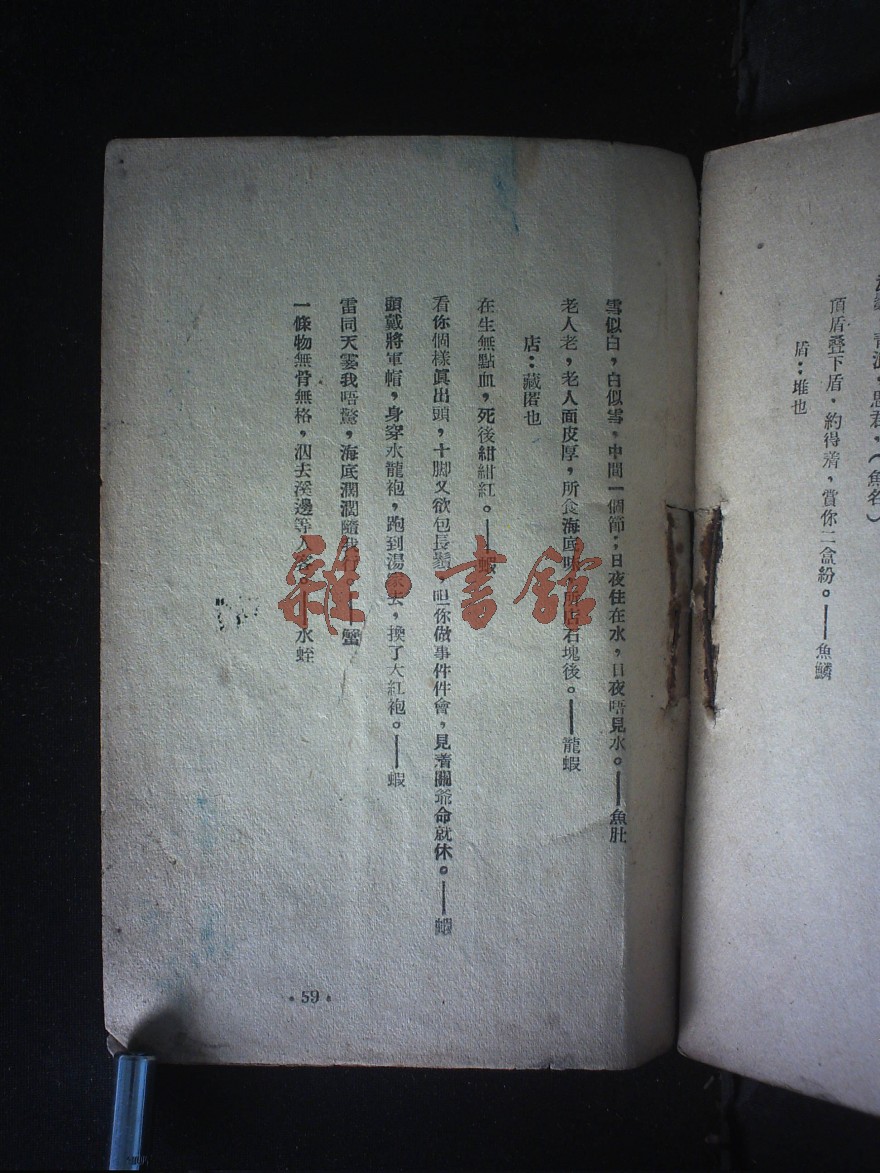 頂盾叠下盾,約得着,賞你二盒紛。——魚鱗
盾:堆也
雪似白,白似雪,中間一個節;日夜住在水,日夜唔見水。——魚肚
老人老,老人面皮厚,所食海底 所店石塊後。——龍蝦
店:藏匿也
在生無點血,死後紺紺紅。——蝦
看你個樣眞出頭,十脚又欲包長鬚,呾你做事件件會,見着關爺命就休。——蝦
頭戴將軍帽,身穿水龍袍,跑到湯 去,換了大紅袍。——蝦
雷同天霎我唔驚,海底濶濶隨我行 ——蟹
一條物無骨無格,泅去溪邊等人客。——水蛭
雜·書館
•59•